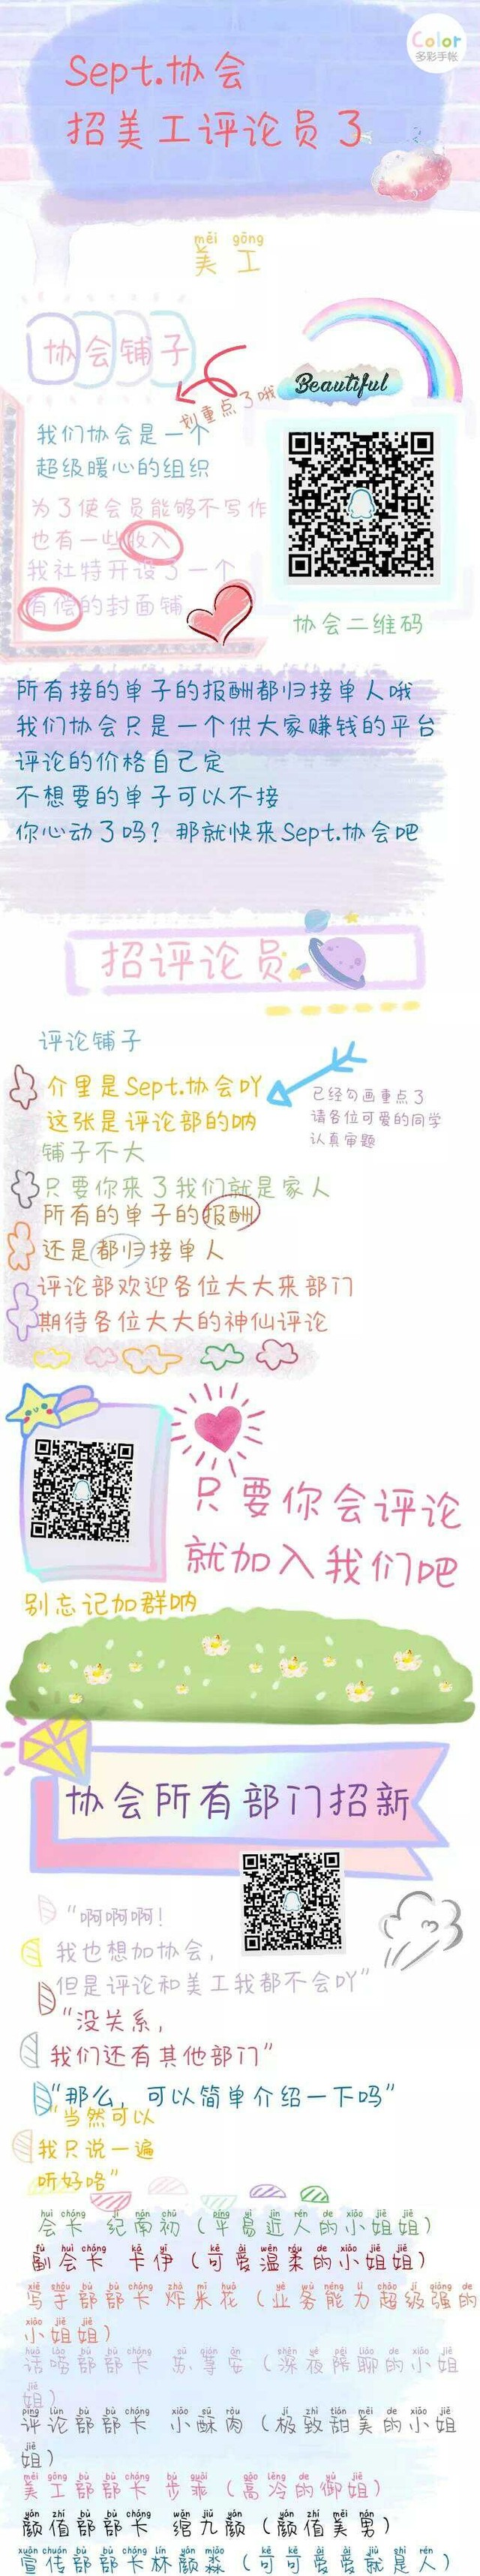 Color
多彩手帐
Sept.协会
招美工评论员了
měi gōng
美工
协会铺子
Beautiful
划重点了哦
我们协会是一个
超级暖心的组织
为了使会员能够不写作
也有一些收入
我社特开设了一个
有偿的封面铺
协会二维码
所有接的单子的报酬都归接单人哦
我们协会只是一个供大家赚钱的平台
评论的价格自己定
不想要的单子可以不接
你心动了吗?那就快来Sept.协会吧
招评论员
评论铺子
介里是Sept.协会吖
这张是评论部的呐
铺子不大
已经勾画重点了
请各位可爱的同学
认真审题
只要你来了我们就是家人
所有的单子的报酬
还是都归接单人
评论部欢迎各位大大来部门
期待各位大大的神仙评论
只要你会评论
就加入我们吧
别忘记加群呐
协会所有部门招新
“啊啊啊!
我也想加协会,
但是评论和美工我都不会吖”
“没关系,
我们还有其他部门”
“那么,可以简单介绍一下吗”
“当然可以
我只说一遍
听好咯”
huì cháng jì nán chū píng yì jìn rén de xiǎo jiě jiě
会长 纪南初(平易近人的小姐姐)
fù huì cháng kǎ yī kě ài wēn róu de xiǎo jiě jiě
副会长 卡伊(可爱温柔的小姐姐)
xiě shǒu bù bù cháng zhà mǐ huā yè wù néng lì chāo jí qiáng de
写手部部长 炸米花(业务能力超级强的
xiǎo jiě jiě
小姐姐)
huà láo bù bù cháng sū qián ān shēn yè péi liáo de xiǎo jiě
话唠部部长 苏荨安(深夜陪聊的小姐
jiě
姐)
píng lùn bù bù cháng xiǎo sū ròu jí zhì tián měi de xiǎo jiě
评论部部长 小酥肉(极致甜美的小姐
jiě
姐)
měi gōng bù bù cháng bù guāi gāo lěng de yù jiě
美工部部长 步乖(高冷的御姐)
yán zhí bù bù cháng wǎn jiǔ yán yán zhí měi nán
颜值部部长 绾九颜(颜值美男)
xuān chuán bù bù cháng lín yán miǎo kě kě ài ài jiù shì rén
宣传部部长林颜淼(可可爱爱就是人)